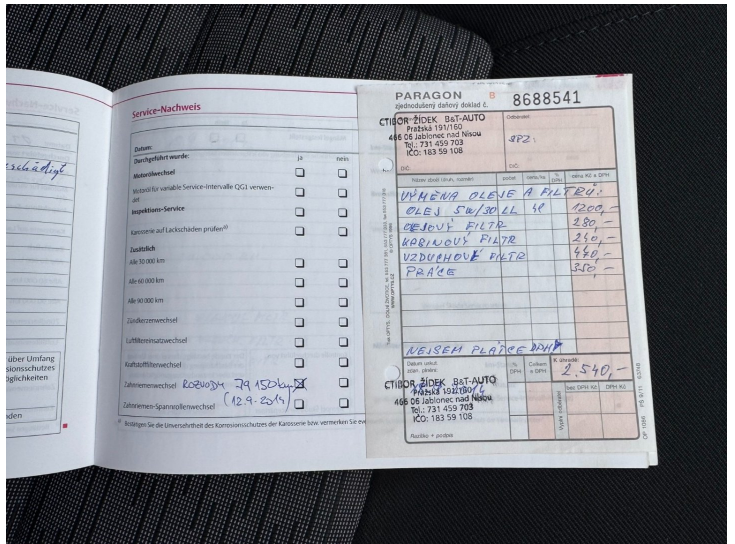 Service-Nachweis
Datum:
Durchgeführt wurde:
ja
nein
Motorölwechsel
Motoröl für variable Service-Intervalle QG1 verwen-
det
Inspektions-Service
Karosserie auf Lackschäden prüfen
Zusätzlich
Alle 30 000 km
Alle 60 000 km
Alle 90 000 km
Zündkerzenwechsel
Luftfiltereinsatzwechsel
Kraftstofffilterwechsel
Zahnriemenwechsel ROZVODY 79 150 km
(12.9.2014)
Zahnriemen-Spannrollenwechsel
Bestätigen Sie die Unversehrtheit des Korrosionsschutzes der Karosserie bzw. vermerken Sie
über Umfang
PARAGON B 8688541
zjednodušený daňový doklad č.
CTIBOR ŽÍDEK B&T-AUTO
Pražská 191/160
466 06 Jablonec nad Nisou
Tel.: 731 459 703
IČO: 183 59 108
Odběratel:
SPZ:
DIČ:
DIČ:
VÝMĚNA OLEJE A FILTRŮ:
OLEJ 5W/30 LL 4l 1200,-
OLEJOVÝ FILTR 280,-
KABINOVÝ FILTR 240,-
VZDUCHOVÝ FILTR 470,-
PRÁCE 350,-
NEJSEM PLÁTCE DPH
Datum uskut.
zdan. plnění:
%
DPH
Celkem
s DPH
K úhradě:
2.540,-
bez DPH Kč
DPH Kč
CTIBOR ŽÍDEK B&T-AUTO
Pražská 191/160
466 06 Jablonec nad Nisou
Tel.: 731 459 703
IČO: 183 59 108
Razítko + podpis